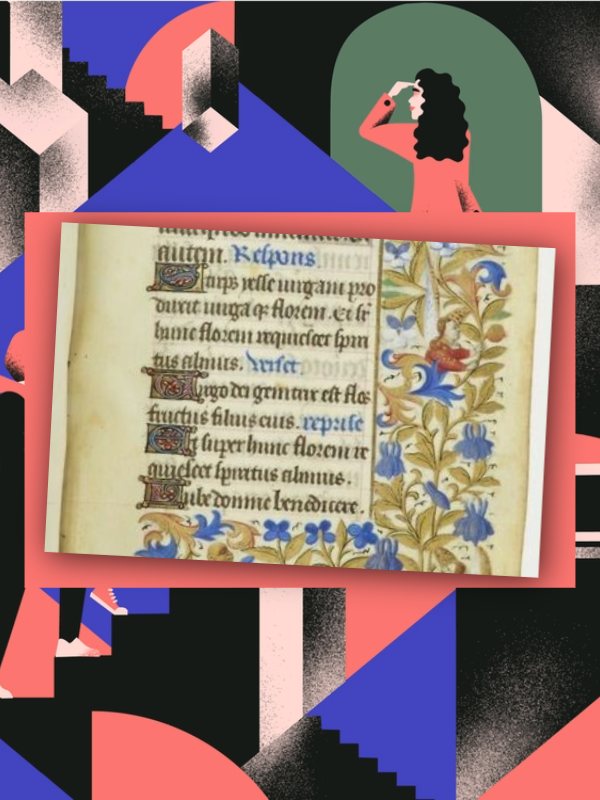 autem. Respons
Stirps yesse uirgam pro
duxit uirga qz florem. Et sr
hunc florem requiescet spiri
tus almus. Verset
Virgo dei genitrix est flos
fructus filius eius. reprise
Et super hunc florem re
quiescet spiritus almus.
Iube domine benedicere.